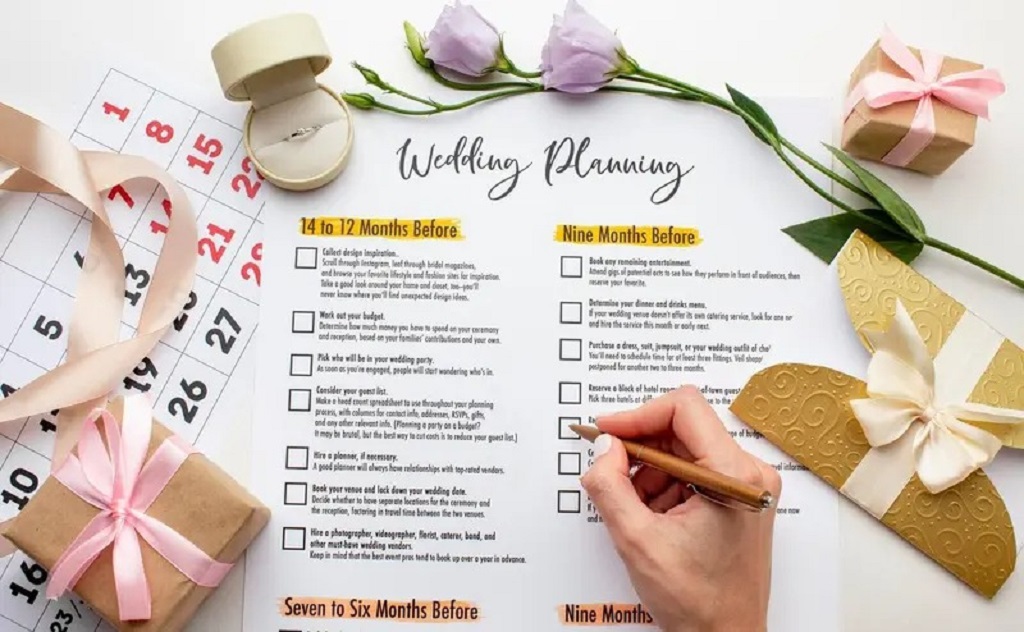 Wedding Planning
14 to 12 Months Before
Collect design inspiration.
Scroll through Instagram, leaf through bridal magazines,
and browse your favorite lifestyle and fashion sites for inspiration.
Take a good look around your home and closet, too—you'll
never know where you'll find unexpected design ideas.
Work out your budget.
Determine how much money you have to spend on your ceremony
and reception, based on your families' contributions and your own.
Pick who will be in your wedding party.
As soon as you're engaged, people will start wondering who's in.
Consider your guest list.
Make a head count spreadsheet to use throughout your planning
process, with columns for contact info, addresses, RSVPs, gifts,
and any other relevant info. (Planning a party on a budget?
It may be brutal, but the best way to cut costs is to reduce your guest list.)
Hire a planner, if necessary.
A good planner will always have relationships with top-rated vendors.
Book your venue and lock down your wedding date.
Decide whether to have separate locations for the ceremony and
the reception, factoring in travel time between the two venues.
Hire a photographer, videographer, florist, caterer, band, and
other must-have wedding vendors.
Keep in mind that the best event pros tend to book up over a year in advance.
Seven to Six Months Before
Nine Months Before
Book any remaining entertainment.
Attend gigs of potential acts to see how they perform in front of audiences, then
reserve your favorite.
Determine your dinner and drinks menu.
If your wedding venue doesn't offer its own catering service, look for one
and hire the service this month or early next.
Purchase a dress, suit, jumpsuit, or your wedding outfit of
You'll need to schedule time for at least three fittings. Veil
postponed for another two to three months.
Reserve a block of hotel guests
Pick three hotels at to the
Nine Months
1
8
15
22
7
14
21
28
13
27
5
19
26
10
16
23/